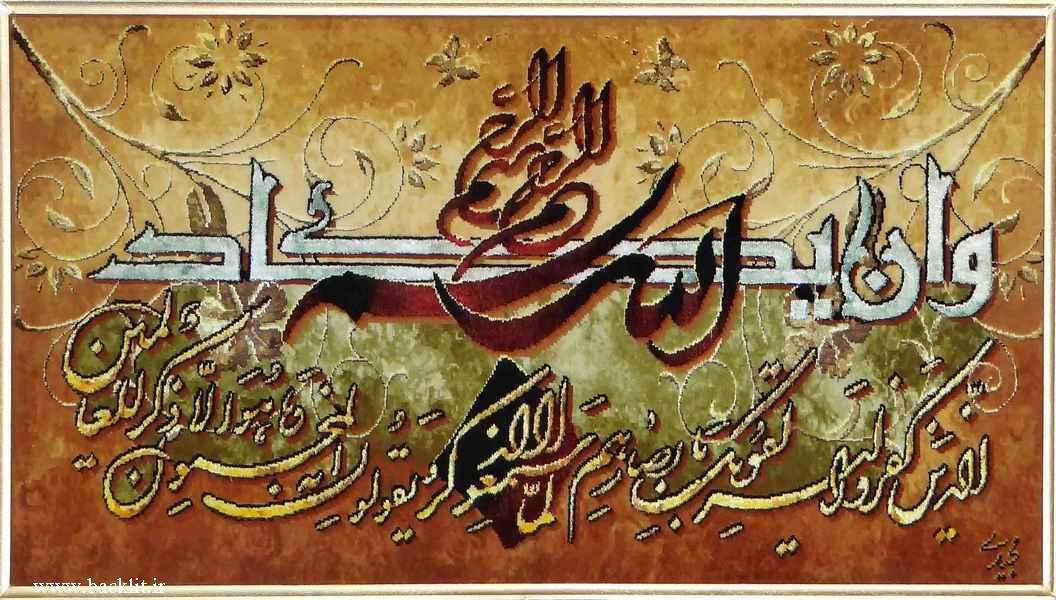 بسم الله الرحمن الرحیم
وان یکاد
الذین کفروا لیزلقونک بابصارهم لما سمعوا الذکر ویقولون انه لمجنون وما هو الا ذکر للعالمین
www.backlit.ir